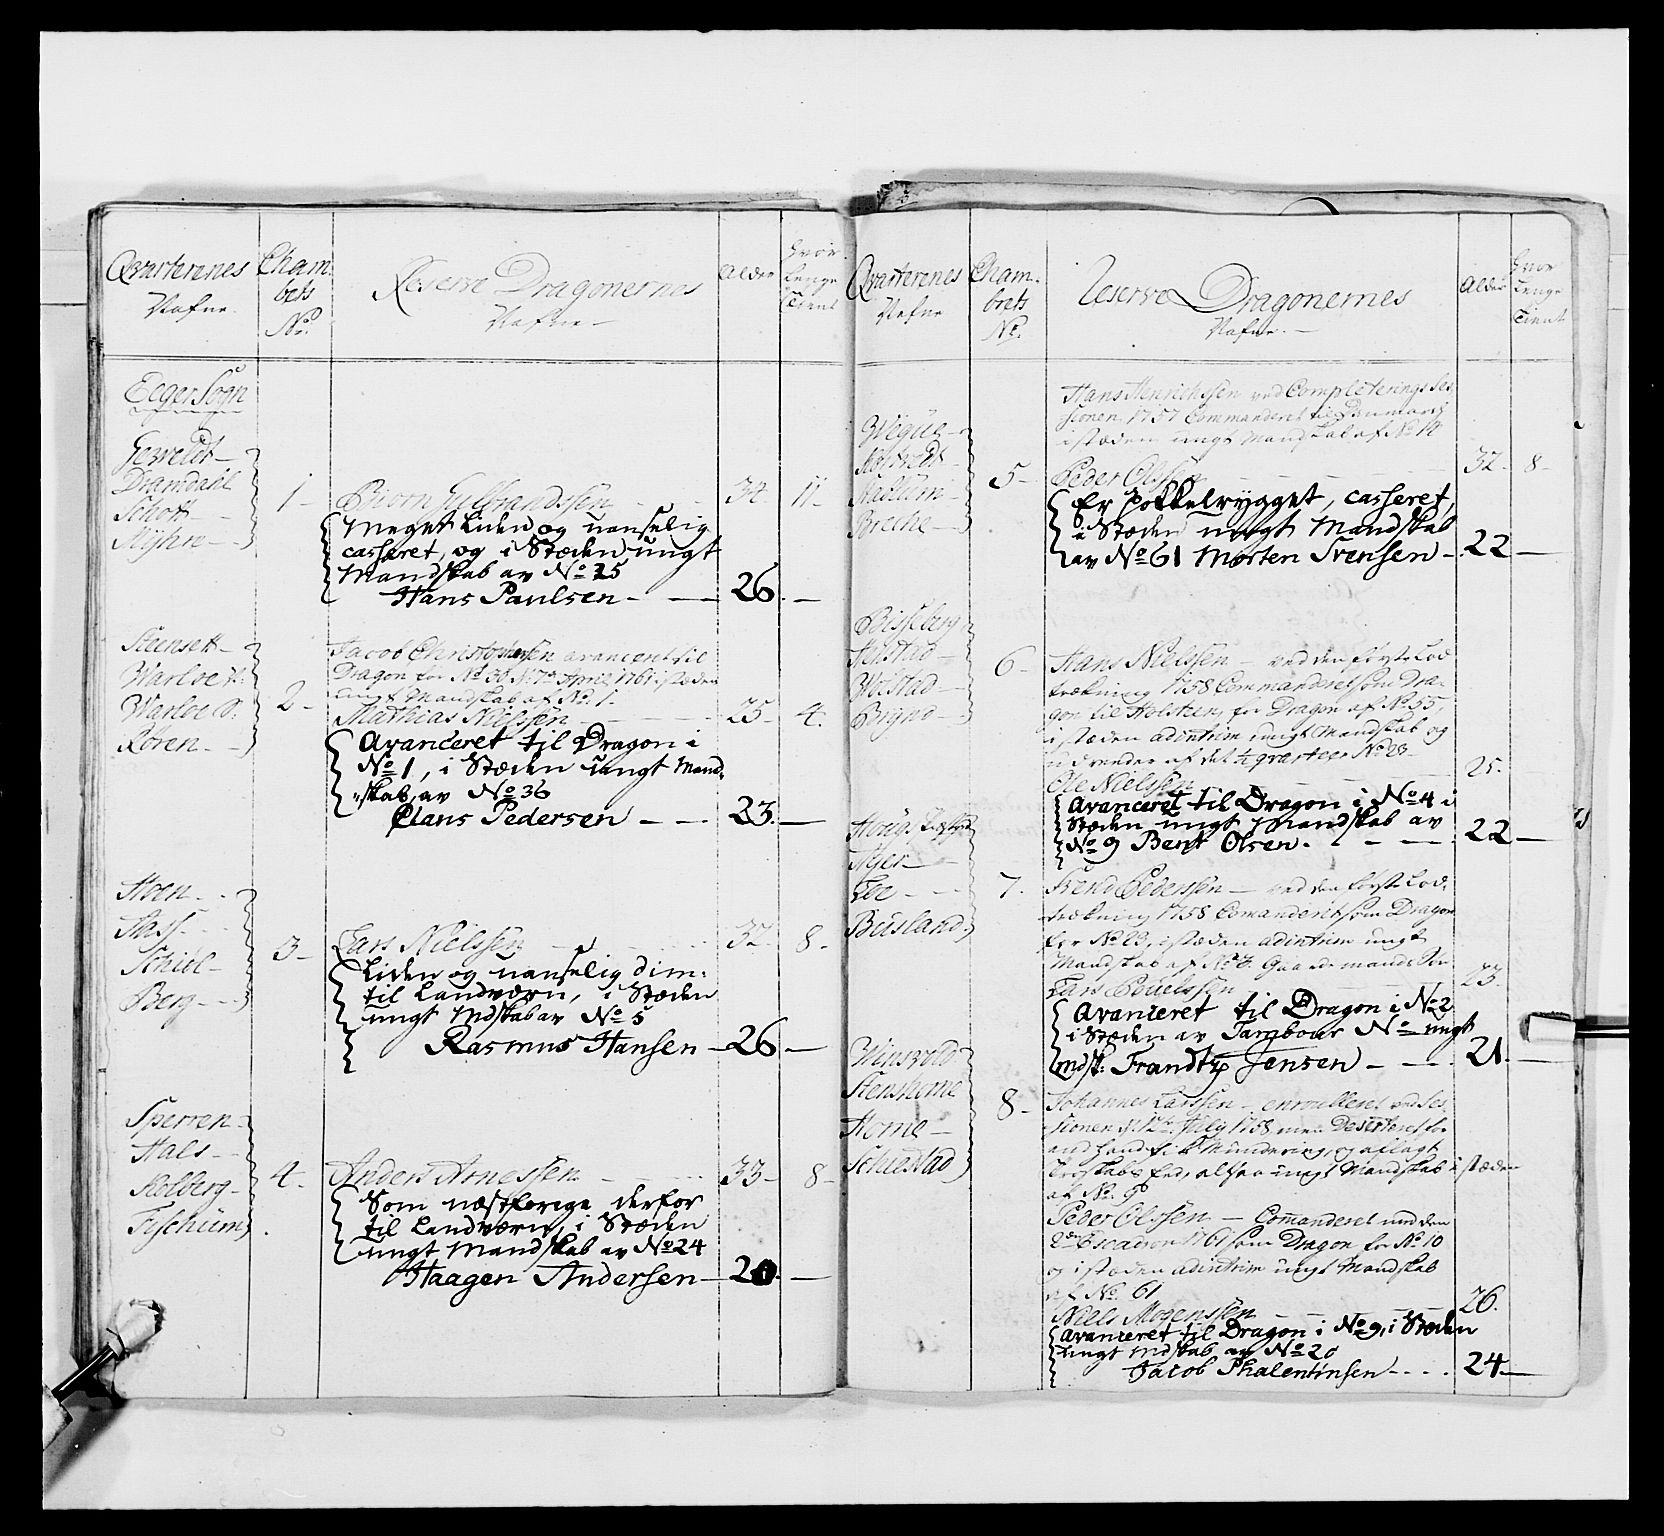 Qvarterenes Nafne.
Cham-
bets
No.
Reserve Dragonernes
Nafne
Alder
Hvor
Lenge
Tient
Eeger Sogn
Gerveldt
Dramdahl
Schott
Myhre
1
Biørn Gulbrandssen 34. 11.
Meget Liden og uanselig
casseret, og i Stæden ungt
Mandskab av No 25
Hans Paulsen 26
Steensett
Warloe N:
Warloe S.
Roren
2
Jacob Christophersen avanceret til
Dragon for No 30 April 1761 i stæden
ungt Mandskab af No. 1.
Mathias Nielssen 25. 4.
Avanceret til Dragon i
No 1, i Stæden ungt Mand-
"skab, av No 36
Clans Pedersen 23.
Hoen
Sass
Schiøl
Berg
3
Lars Nielssen 32. 8.
Liden og uanselig dim:
til Landværn, i Stæden
ungt Mdskab av No 5
Rasmus Hansen 26
Sperren
Hals
Kolberg
Fyschum
4.
Anders Arnessen 33. 8
Som næstforige derfor
til Landværn, i Stæden
ungt Mandskab av No 24
Haagen Andersen 20.
Qvarterenes
Nafne
Cham-
bets
No.
Reserve Dragonernes
Nafne.
Alder
Hvor
Lenge
Tient
Hans Henrichssen ved Completerings Ses-
sionen 1757 Commanderet til Danmarch
i stæden ungt Mandskab af No 14
Præstvedt
5
Peder Olssen 32. 8
Er pokkelrygget, casseret,
i Stæden ungt Mandskab
av No 61 Morten Svensen 22
Bisseberg
Henstad
Wolstad
Brynd
6
Hans Nielssen ved den første Lod-
trækning 1758 Commanderet som Dra-
gon til Holsteen, for Dragon af No 55,
i stæden adintrim ungt Mandskab og
af det 1/4 qvarteer No 23
Ole Nielssen 25.
Avanceret til Dragon i No 4 i
Stæden ungt Mandskab av
No 9 Bent Olsen. 22
Ager
Foe
Buisland
7.
Svend Pederssen ved den første Lod-
trækning 1758 Comanderet som Dragon
for No 23, i stæden adintrim ungt
Mandskab af No 3.
Lars Pouelssen 23.
Avanceret til Dragon i No 2
i Stæden av Tambour No ungt
mdsk: Frandtz Jensen 21.
Winsvold
Stenshorne
Horne
Schiestad
8
Johannes Larssen enroulleret ved Ses-
sionen d: 12te July 1758 men Deserteret for-
end hand fik Mundering, og aflagt
Troskabs Eed, altsaa ungt Mandskab i stæden
af No. 9
Peder Olssen Comanderet med den
2den Escadron 1761 som Dragon for No 10
og i stæden adintrim ungt Mandskab
af No. 61
Niels Mogenssen 26.
Avanceret til Dragon i No 9, i Stæden
ungt Mdskab av No 20
Jacob Phalentinsen 24